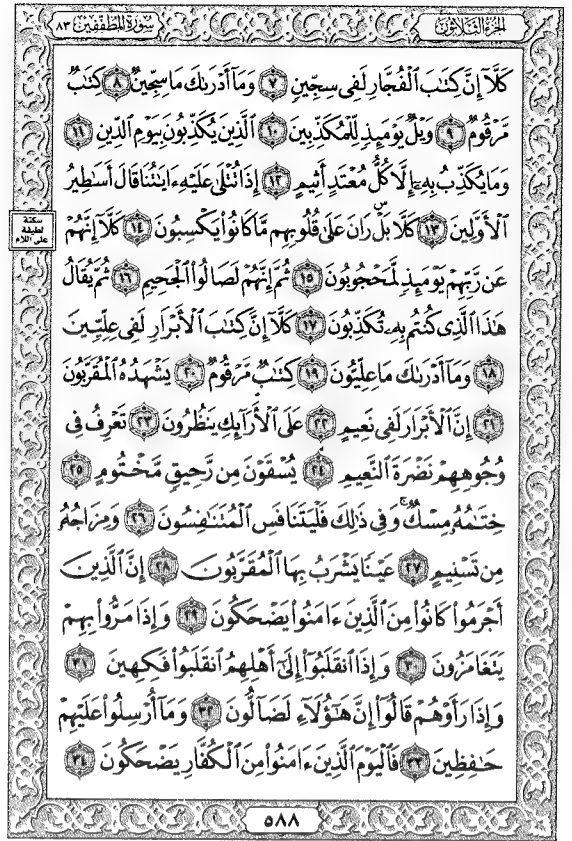 سورة المطففين ٨٣
الجزء الثلاثون
كَلَّآ إِنَّ كِتَٰبَ ٱلْفُجَّارِ لَفِى سِجِّينٍ ٧ وَمَآ أَدْرَىٰكَ مَا سِجِّينٌ ٨ كِتَٰبٌ
مَّرْقُومٌ ٩ وَيْلٌ يَوْمَئِذٍ لِّلْمُكَذِّبِينَ ١٠ ٱلَّذِينَ يُكَذِّبُونَ بِيَوْمِ ٱلدِّينِ ١١
وَمَا يُكَذِّبُ بِهِۦٓ إِلَّا كُلُّ مُعْتَدٍ أَثِيمٍ ١٢ إِذَا تُتْلَىٰ عَلَيْهِ ءَايَٰتُنَا قَالَ أَسَٰطِيرُ
ٱلْأَوَّلِينَ ١٣ كَلَّا بَلْۜ رَانَ عَلَىٰ قُلُوبِهِم مَّا كَانُوا۟ يَكْسِبُونَ ١٤ كَلَّآ إِنَّهُمْ
سكتة
لطيفة
على اللام
عَن رَّبِّهِمْ يَوْمَئِذٍ لَّمَحْجُوبُونَ ١٥ ثُمَّ إِنَّهُمْ لَصَالُوا۟ ٱلْجَحِيمِ ١٦ ثُمَّ يُقَالُ
هَٰذَا ٱلَّذِى كُنتُم بِهِۦ تُكَذِّبُونَ ١٧ كَلَّآ إِنَّ كِتَٰبَ ٱلْأَبْرَارِ لَفِى عِلِّيِّينَ
١٨ وَمَآ أَدْرَىٰكَ مَا عِلِّيُّونَ ١٩ كِتَٰبٌ مَّرْقُومٌ ٢٠ يَشْهَدُهُ ٱلْمُقَرَّبُونَ
٢١ إِنَّ ٱلْأَبْرَارَ لَفِى نَعِيمٍ ٢٢ عَلَى ٱلْأَرَآئِكِ يَنظُرُونَ ٢٣ تَعْرِفُ فِى
وُجُوهِهِمْ نَضْرَةَ ٱلنَّعِيمِ ٢٤ يُسْقَوْنَ مِن رَّحِيقٍ مَّخْتُومٍ ٢٥
خِتَٰمُهُۥ مِسْكٌ ۚ وَفِى ذَٰلِكَ فَلْيَتَنَافَسِ ٱلْمُتَنَٰفِسُونَ ٢٦ وَمِزَاجُهُۥ
مِن تَسْنِيمٍ ٢٧ عَيْنًا يَشْرَبُ بِهَا ٱلْمُقَرَّبُونَ ٢٨ إِنَّ ٱلَّذِينَ
أَجْرَمُوا۟ كَانُوا۟ مِنَ ٱلَّذِينَ ءَامَنُوا۟ يَضْحَكُونَ ٢٩ وَإِذَا مَرُّوا۟ بِهِمْ
يَتَغَامَزُونَ ٣٠ وَإِذَا ٱنقَلَبُوٓا۟ إِلَىٰٓ أَهْلِهِمُ ٱنقَلَبُوا۟ فَكِهِينَ ٣١
وَإِذَا رَأَوْهُمْ قَالُوٓا۟ إِنَّ هَٰٓؤُلَآءِ لَضَآلُّونَ ٣٢ وَمَآ أُرْسِلُوا۟ عَلَيْهِمْ
حَٰفِظِينَ ٣٣ فَٱلْيَوْمَ ٱلَّذِينَ ءَامَنُوا۟ مِنَ ٱلْكُفَّارِ يَضْحَكُونَ ٣٤
٥٨٨